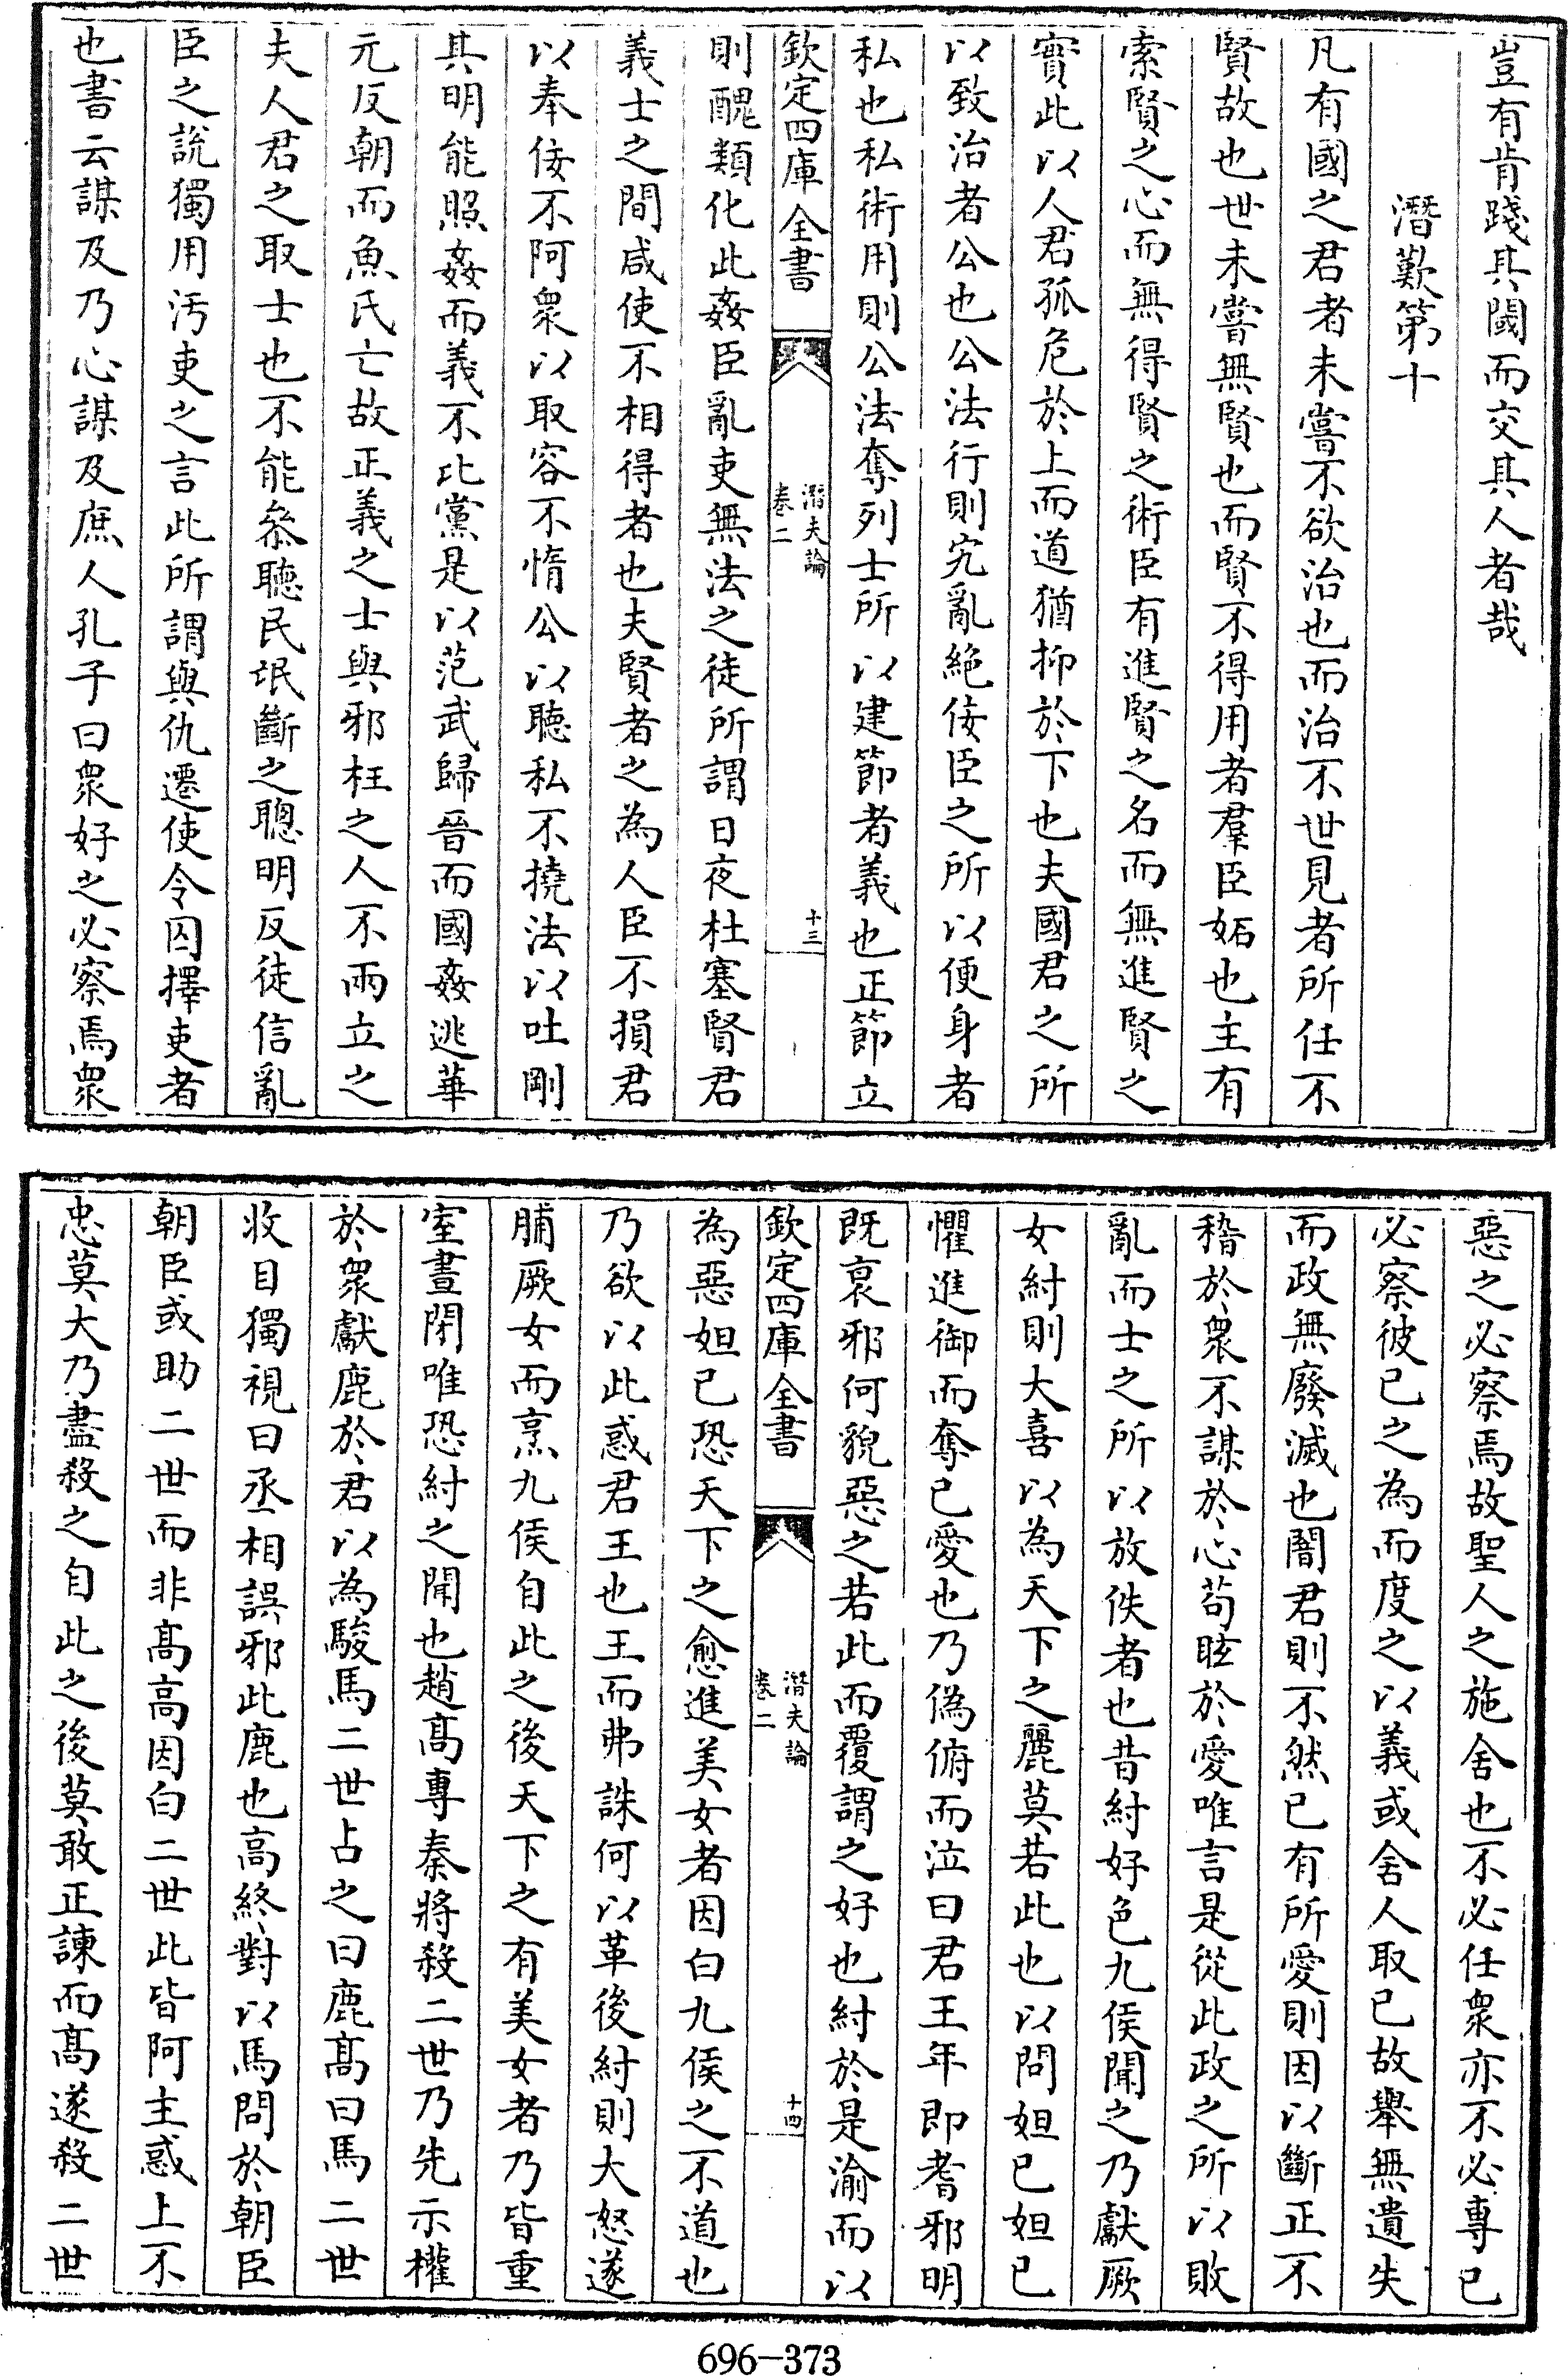 豈有肯踐其閾而交其人者哉
潛歎第十
凡有國之君者未嘗不欲治也而治不世見者所任不
賢故也世未嘗無賢也而賢不得用者羣臣妬也主有
索賢之心而無得賢之術臣有進賢之名而無進賢之
實此以人君孤危於上而道猶抑於下也夫國君之所
以致治者公也公法行則宄亂絶佞臣之所以便身者
私也私術用則公法奪列士所以建節者義也正節立
欽定四庫全書
潛夫論
卷二
十三
則醜類化此姦臣亂吏無法之徒所謂日夜杜塞賢君
義士之間咸使不相得者也夫賢者之為人臣不損君
以奉佞不阿衆以取容不惰公以聽私不撓法以吐剛
其明能照姦而義不比黨是以范武歸晉而國姦逃華
元反朝而魚氏亡故正義之士與邪枉之人不兩立之
夫人君之取士也不能叅聽民氓斷之聰明反徒信亂
臣之說獨用汚吏之言此所謂與仇遷使令囚擇吏者
也書云謀及乃心謀及庶人孔子曰衆好之必察焉衆
惡之必察焉故聖人之施舍也不必任衆亦不必專已
必察彼已之為而度之以義或舍人取已故舉無遺失
而政無廢滅也闇君則不然已有所愛則因以斷正不
稽於衆不謀於心苟眩於愛唯言是從此政之所以敗
亂而士之所以放佚者也昔紂好色九侯聞之乃獻厥
女紂則大喜以為天下之麗莫若此也以問妲已妲已
懼進御而奪已愛也乃偽俯而泣曰君王年即耆邪明
既衰邪何貌惡之若此而覆謂之好也紂於是渝而以
欽定四庫全書
潛夫論
卷二
十四
為惡妲已恐天下之愈進美女者因白九侯之不道也
乃欲以此惑君王也王而弗誅何以革後紂則大怒遂
脯厥女而烹九侯自此之後天下之有美女者乃皆重
室晝閉唯恐紂之聞也趙髙專秦將殺二世乃先示權
於衆獻鹿於君以為駿馬二世占之曰鹿髙曰馬二世
收目獨視曰丞相誤邪此鹿也高終對以馬問於朝臣
朝臣或助二世而非髙高因白二世此皆阿主惑上不
忠莫大乃盡殺之自此之後莫敢正諫而髙遂殺二世
696-373